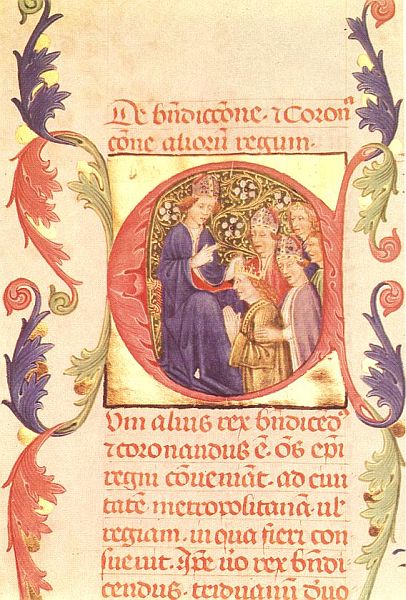 De bn̄diccōne · ⁊ Coronᵃ
cōne alioru̅ regum ·
CVm aliuis rex bn̄dicedꝰ
⁊ coronandus ē · ōs ep̄i
regni cōueniāt · ad ciui
tatē metropolitanā · ul'
regiam · in qua fieri con
sueuit · Ip̄e u̅o rex bn̄di
cendus · terduanū d̄uo